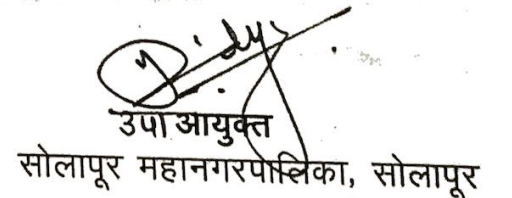 उपा आयुक्त
सोलापूर महानगरपालिका, सोलापूर